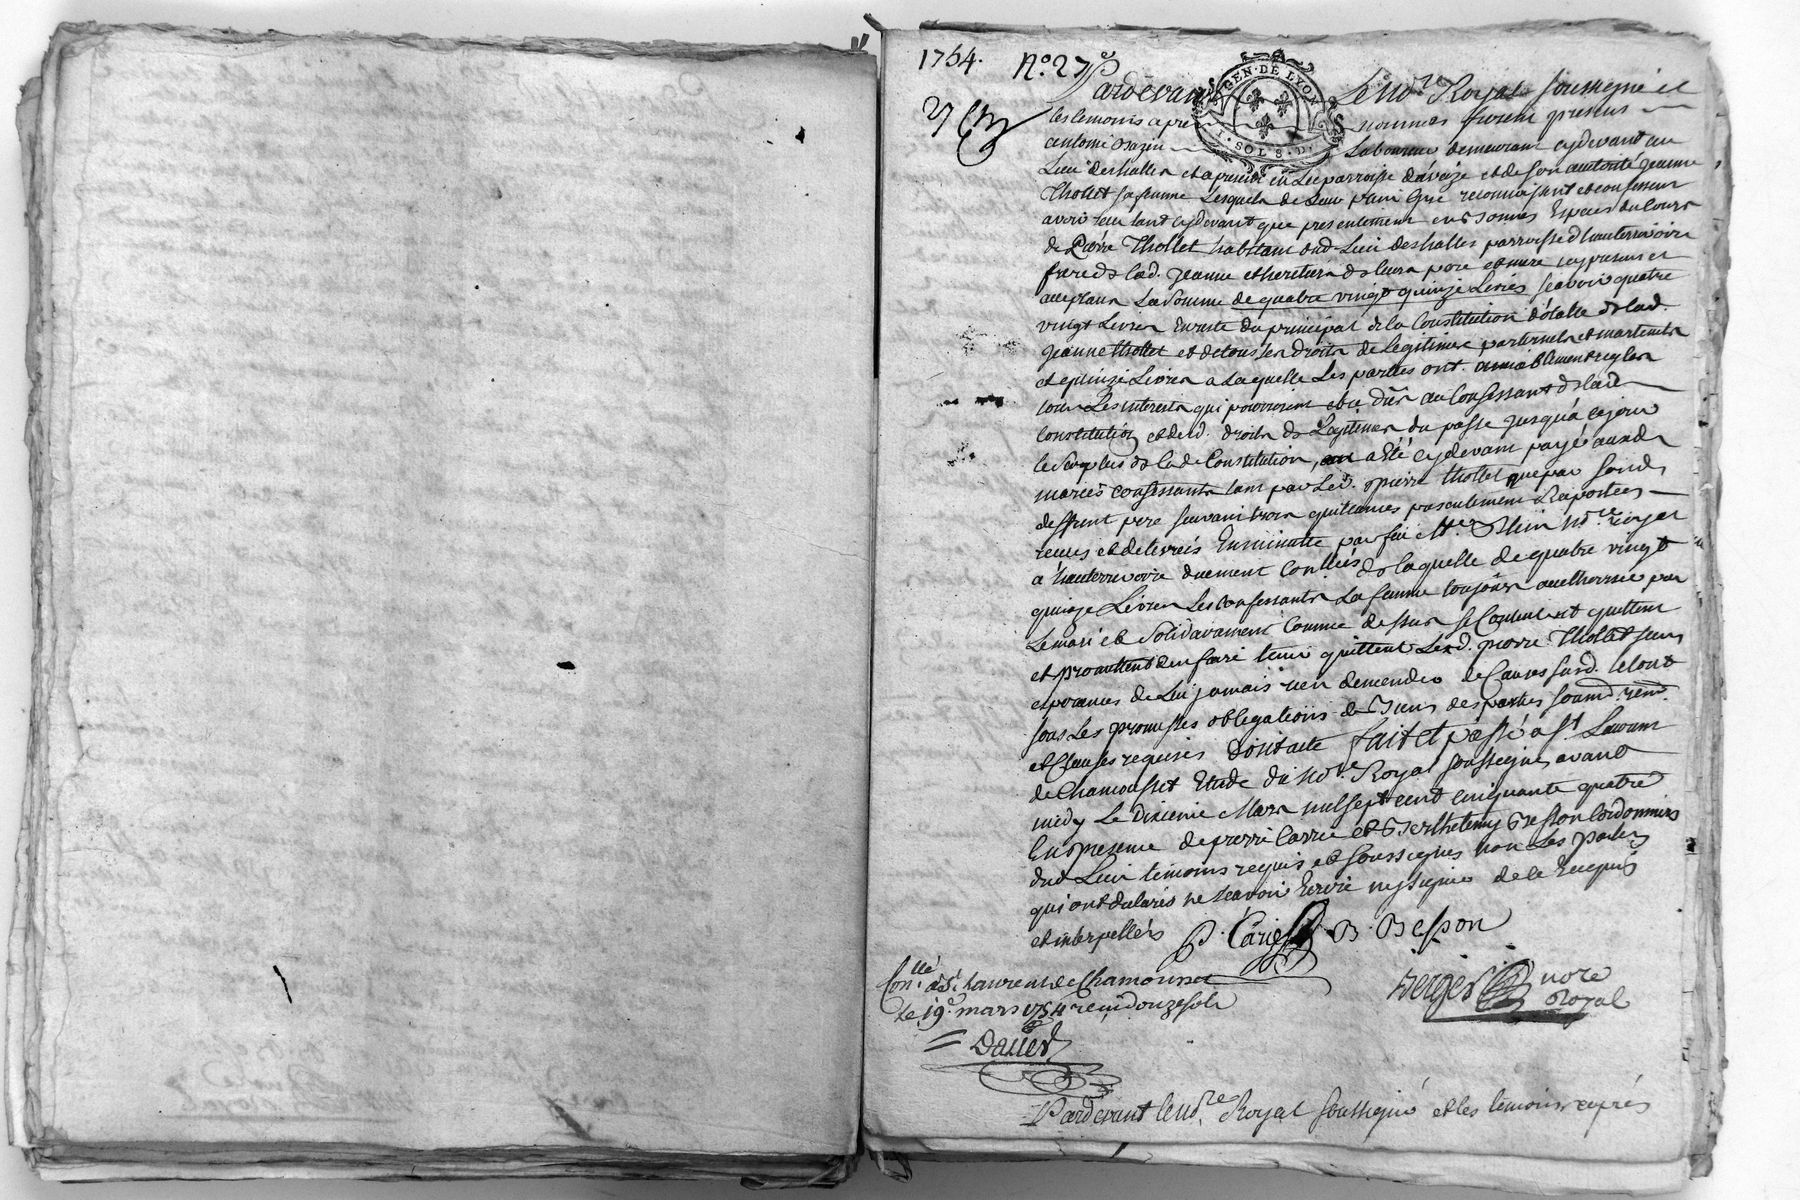 1754. N.o 27e
GEN. DE LYON
I. SOL 8. D.
Pardevant Le Nore Royal soussigné et
les temoins apres nommes furent presens
antoine Laboureur demeurant cydevant au
Lieu deshalles et apresent en La parroisse d'avèize et de son authorité Jeanne
Thollet sa femme Lesquels de Leur gré reconnoissent et confessent
avoir eu tant cydevant que presentement en bonnes Especes du Cours
de Pierre Thollet habitant dud. Lieu deshalles parroisse d'hauterivoire
frere de lad. Jeanne et heritier de leurs pere et mere icy present et
acceptant La Somme de quatre vingt quinze Livres scavoir quatre
vingt Livres En reste du principal de la Constitution dotalle de lad.
Jeanne thollet et de tous ses droits de Legitime paternels et maternels
et quinze Livres a Laquelle Les parties ont amiablement reglés
tous Les interests qui pouvoient etre dus au Confessant de lade
Constitution et desd. droits de Legitimes du passe jusqu'a cejour
le Surplus de lade Constitution, a été cydevant payé auxds
mariés confessants tant par Led. pierre thollet que par sond.
deffunt pere suivant trois quittances passeulement Raportees
receues et delivreés En minutte par feu Me. Nore royal
a hauterivoire duement Conllés de laquelle de quatre vingt
quinze Livres Les confessants La femme toujours authorisée par
Le mari et Solidairement comme dessus se Contentent quittent
et promettent den faire tenir quitte Led. pierre Thollet sens
espérances de Lui jamais rien demender de Causes susd. le tout
sous Les promesses obligations de biens des parties soumd. renon
et Clauses requises Dont acte fait et passé a St Laurent
de Chamousset Etude du Nore Royal soussigné avant
midy Le Dixieme Mars mil sept cent cinquante quatre
En presence de pierre Carrie et Berthelemy Besson Cordonniers
dud Lieu temoins requis et soussignes non Les parties
qui ont declarés ne scavoir Ecrire ny signer de ce Enquis
et interpellés P. Cariés B. Besson
Berger nore
Royal
Conllé a St Laurent de Chamousset
le 19e mars 1754 reçu douze sols
Daller
Pardevant le Nore Royal soussigné et les temoins aprés